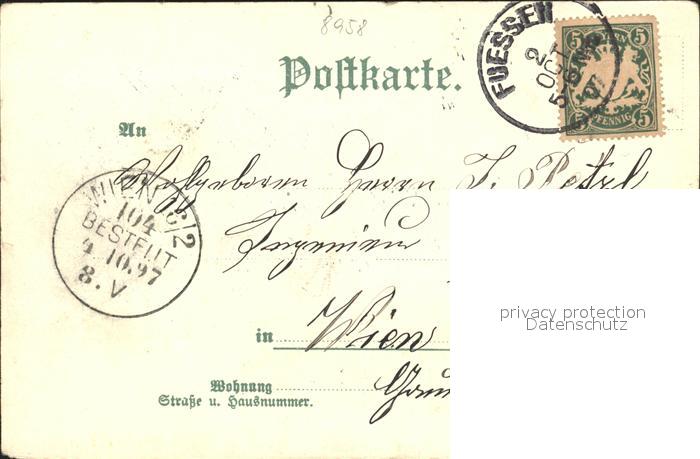 8958
FUESSEN
2
OCT
5
5
BAYERN
PFENNIG
5
5
Postkarte.
An
Wolgeboren Herrn J.
Ingenieur
WIEN 16/2
104
BESTELLT
4.10.97
8.V
privacy protection
Datenschutz
in Wien
Wohnung
Straße u. Hausnummer.